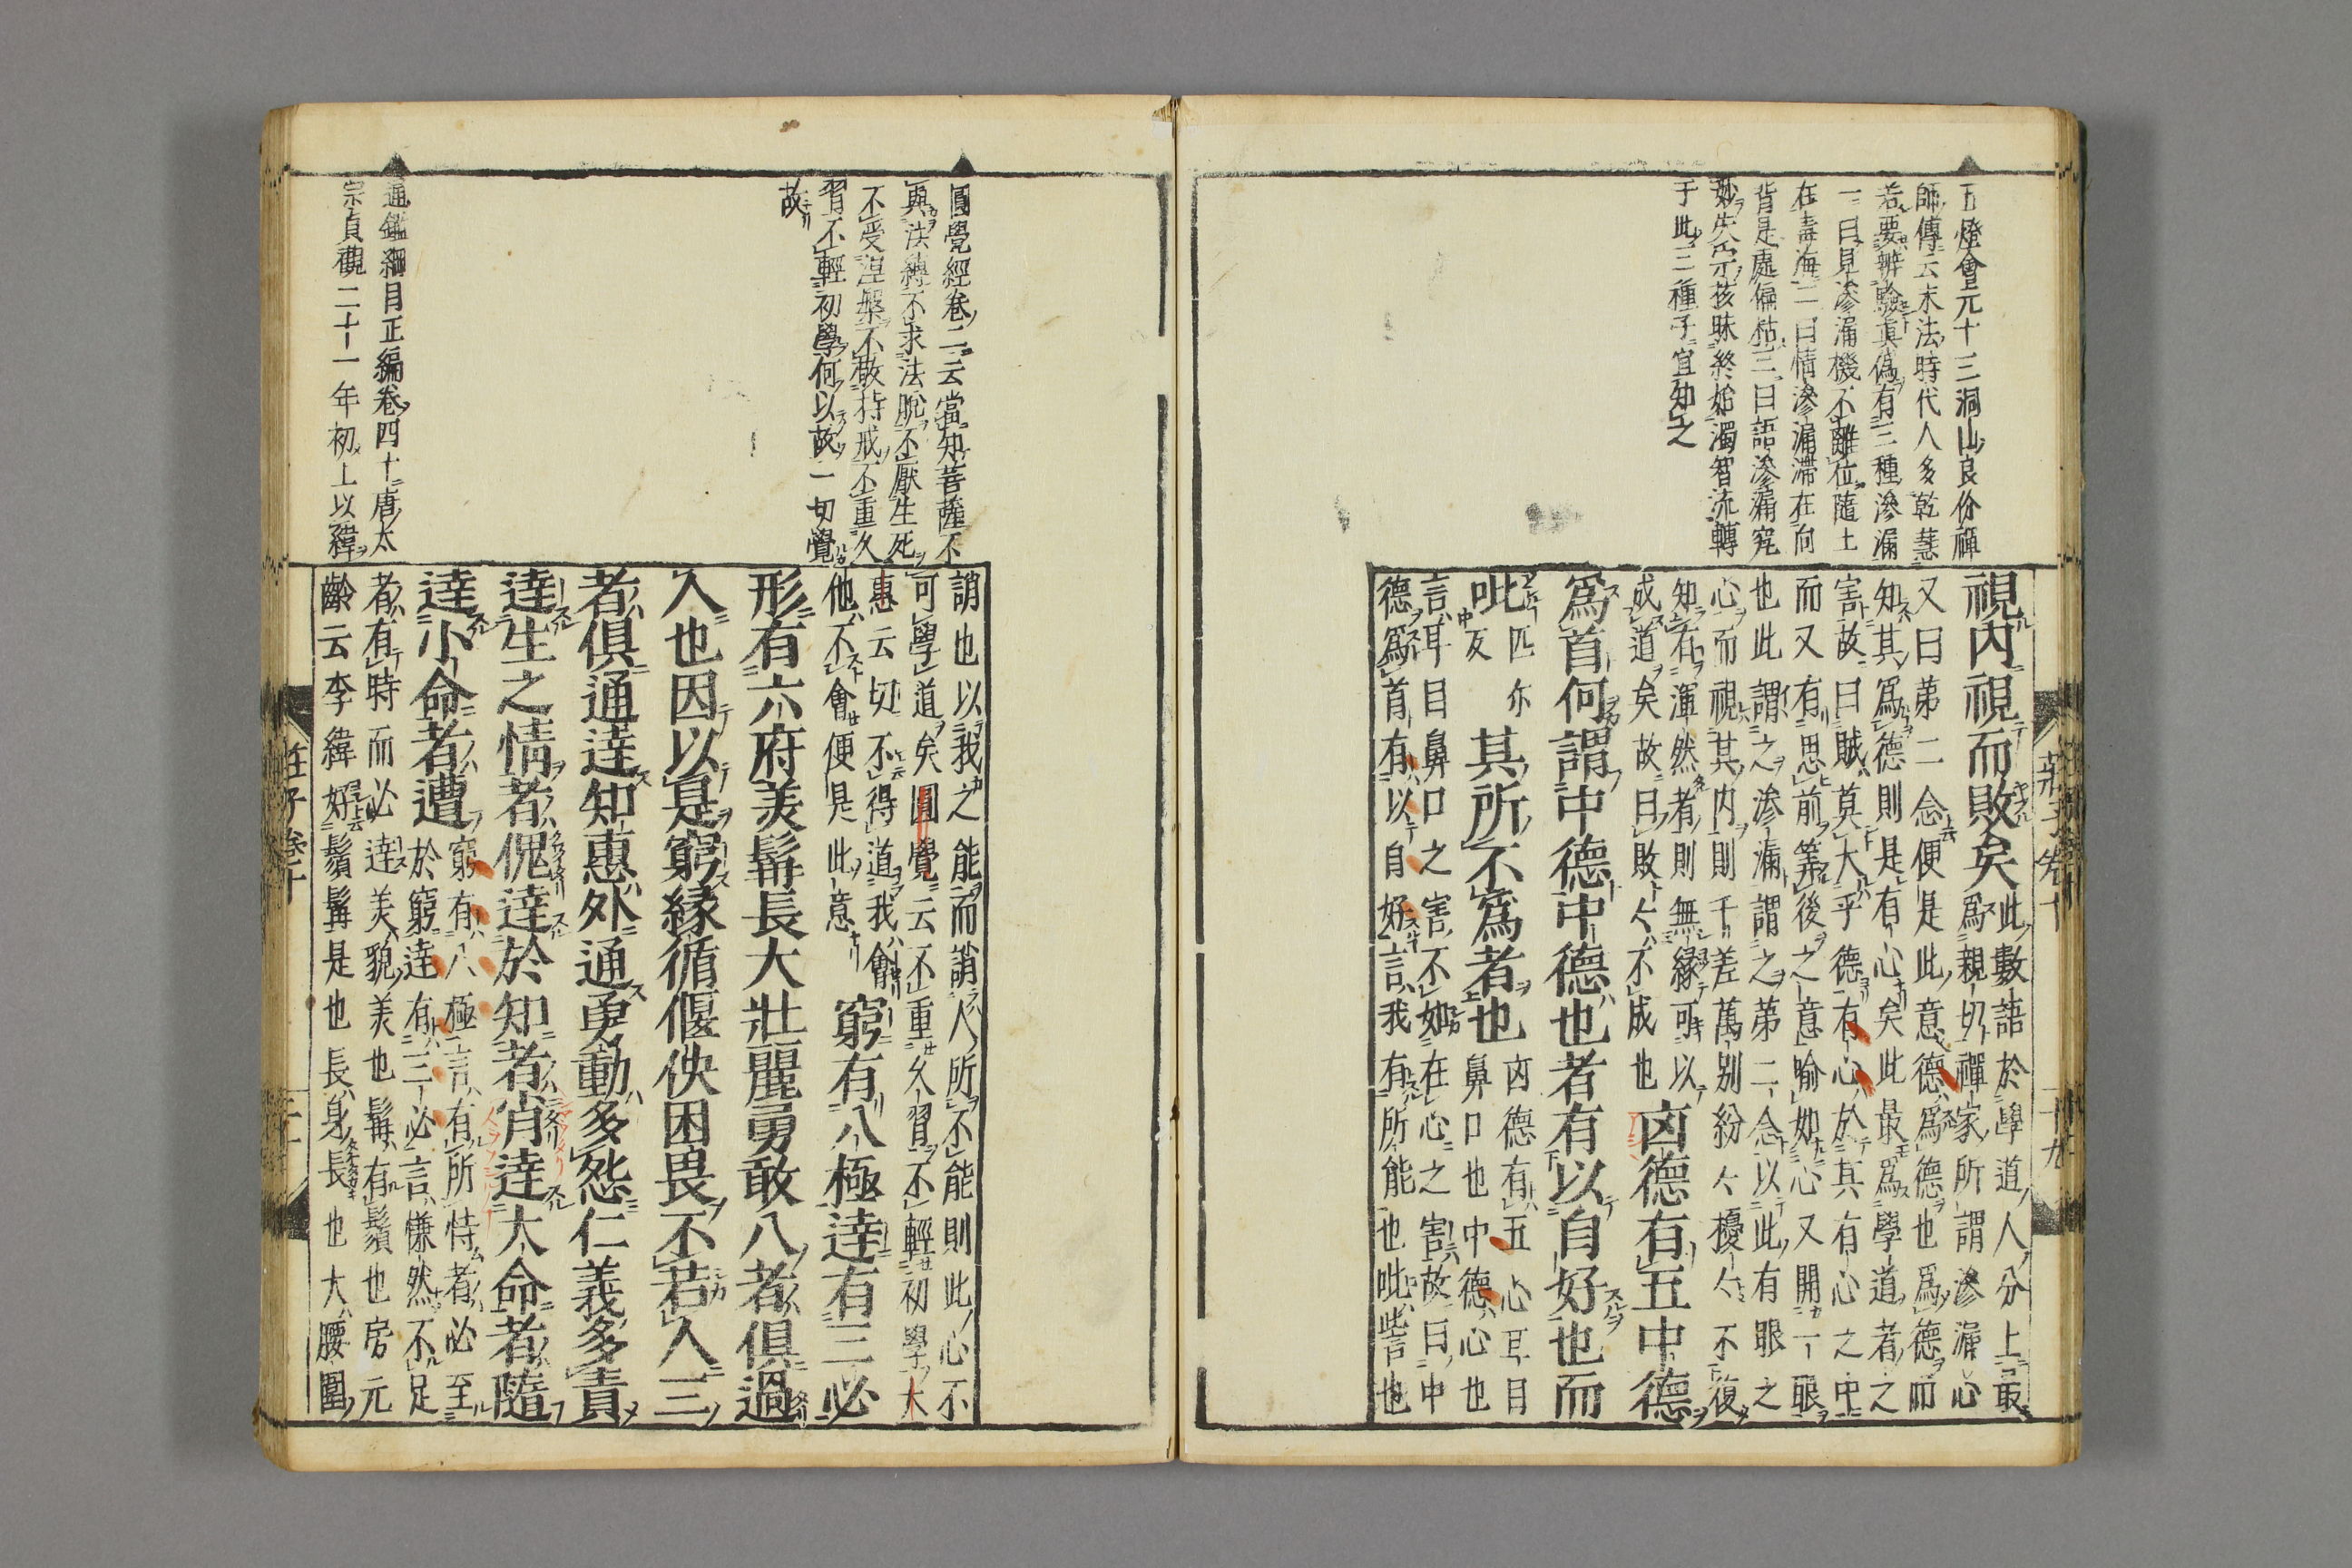 五燈會元十三洞山良价禪
師傳云末法時代人多乾慧
若要辨驗真偽有三種滲漏
一曰見滲漏機不離位隨土
在毒海二曰情滲漏滯在向
背是處偏枯三曰語滲漏究
妙失宗玅昧終始濁智流轉
于此三種子宜知之
視内視而敗矣此數語於學道人分上最
爲親切禪家所謂滲漏心
又曰第二念便是此意德爲德也爲德而
知其爲德則是有心矣此最爲學道者之
害故曰賊莫大乎德有心於其有心之中
而又有思前筭後之意喻如心又開一眼
也此謂之滲漏謂之第二念以此有眼之
心而視其内則千差萬别紛々擾々不復
知有渾然者則無緣可以
成道矣故曰敗々不成也凶德有五中德
爲首何謂中德中德也者有以自好也而
吡匹尒
反其所不爲者也凶德有五心耳目
鼻口也中德心也
言耳目鼻口之害不如在心之害故曰中
德爲首有以自好言我有所能也吡訾也
莊子卷十
二十九
圓覺經卷二云當知菩薩不
與法縛不求法脫不厭生死
不愛涅槃不敬持戒不重久
習不輕初學何以故一切覺
故
誚也以我之能而誚人所不能則此心不
可學道矣圓覺云不重久習不輕初學大
惠云切不得道我會
他不會便是此意窮有八極達有三必
形有六府美髯長大壯麗勇敢八者俱過
人也因以是窮緣循偃佒困畏不若人三
者俱通達知惠外通勇動多怨仁義多責
達生之情者傀達於知者肖達大命者隨
達小命者遭窮有八極言有所恃者必至
於窮達有三必言慊然不足
者有時而必達美貌美也髯有鬚也房元
齡云李緯好鬚髯是也長身長也大腰圍
通鑑綱目正編卷四十唐太
宗貞觀二十一年初上以緯
莊子卷十